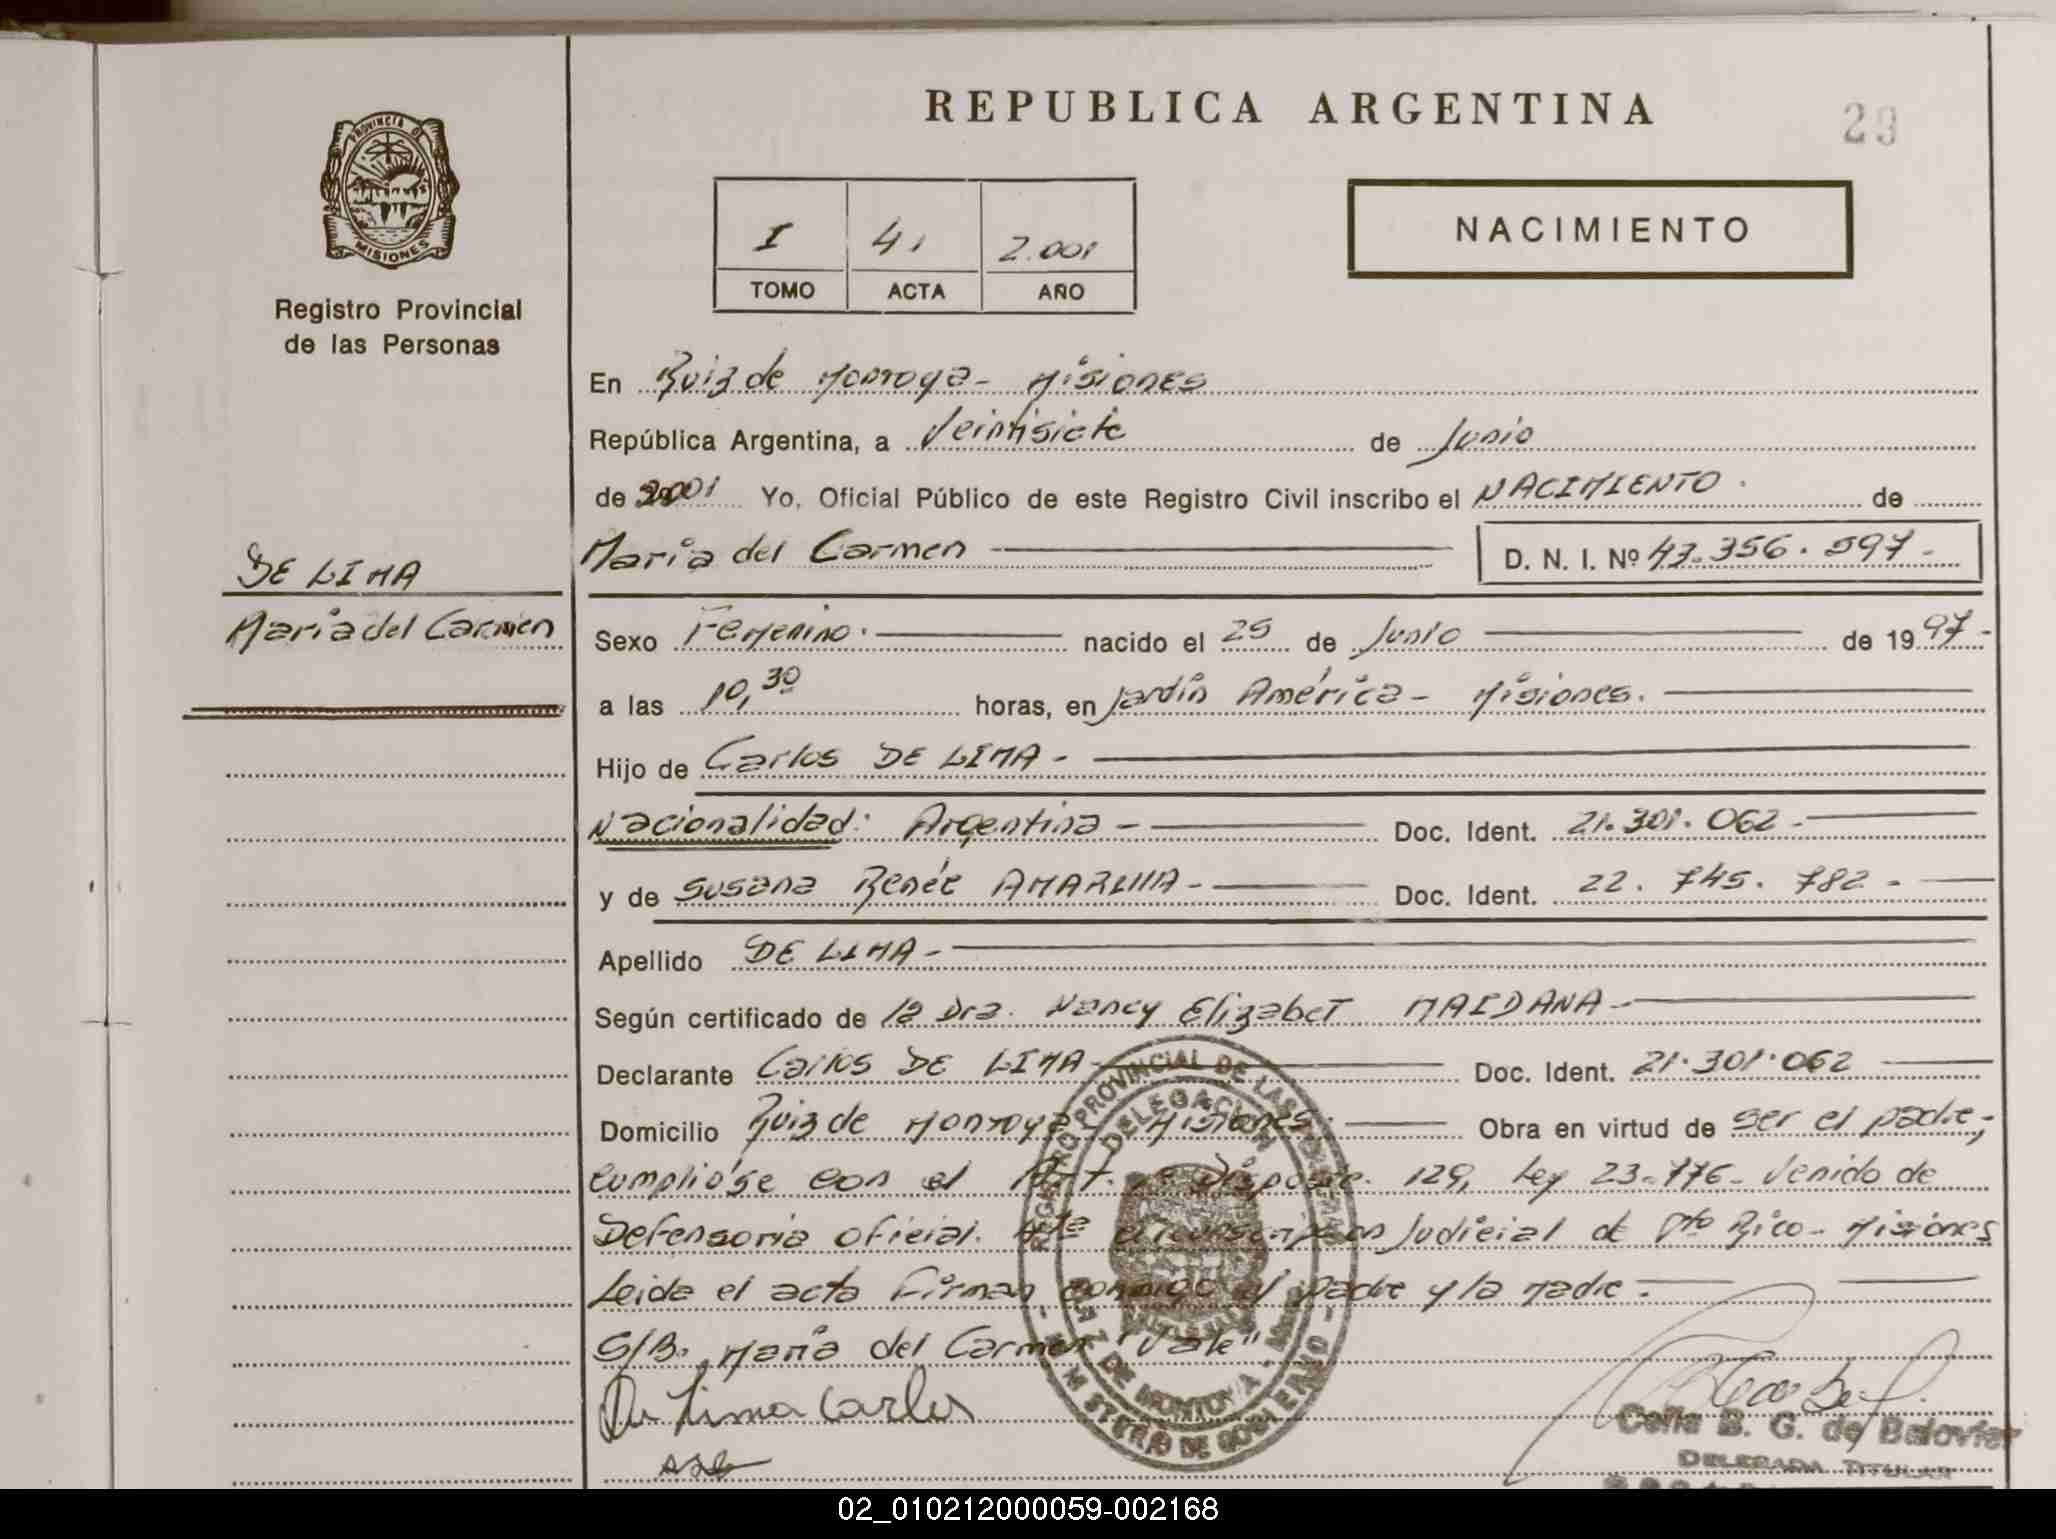 REPUBLICA ARGENTINA
29
PROVINCIA DE
MISIONES
Registro Provincial
de las Personas
NACIMIENTO
I 41 2.001
TOMO ACTA AÑO
En Ruiz de Montoya - Misiones
República Argentina, a Veintisiete de Junio
de 2001 Yo, Oficial Público de este Registro Civil inscribo el NACIMIENTO. de
María del Carmen D. N. I. Nº 43.356.597-
DE LIMA
María del Carmen
Sexo Femenino. nacido el 25 de Junio de 1997-
a las 10,30 horas, en Jardín América - Misiones.
Hijo de Carlos DE LIMA -
Nacionalidad: Argentina - Doc. Ident. 21.301.062-
y de Susana Renée AMARILLA - Doc. Ident. 22.745.782-
Apellido DE LIMA -
Según certificado de la Dra. Nancy Elizabet MAIDANA -
Declarante Carlos DE LIMA - Doc. Ident. 21.301.062
Domicilio Ruiz de Montoya Misiones. Obra en virtud de ser el padre,-
cumplióse con el Art. Disposic. 129, Ley 23.776- Venido de
Defensoría oficial. Judicial de Pto Rico - Misiones
Leida el acta firman conmigo el padre y la madre.
S/B. María del Carmen "Vale"
De Lima Carlos
REGISTRO PROVINCIAL DE LAS PERSONAS
DELEGACION
RUIZ DE MONTOYA - Mnes
MINISTERIO DE GOBIERNO
Celia B. G. de Balovier
DELEGADA TITULAR
02_010212000059-002168